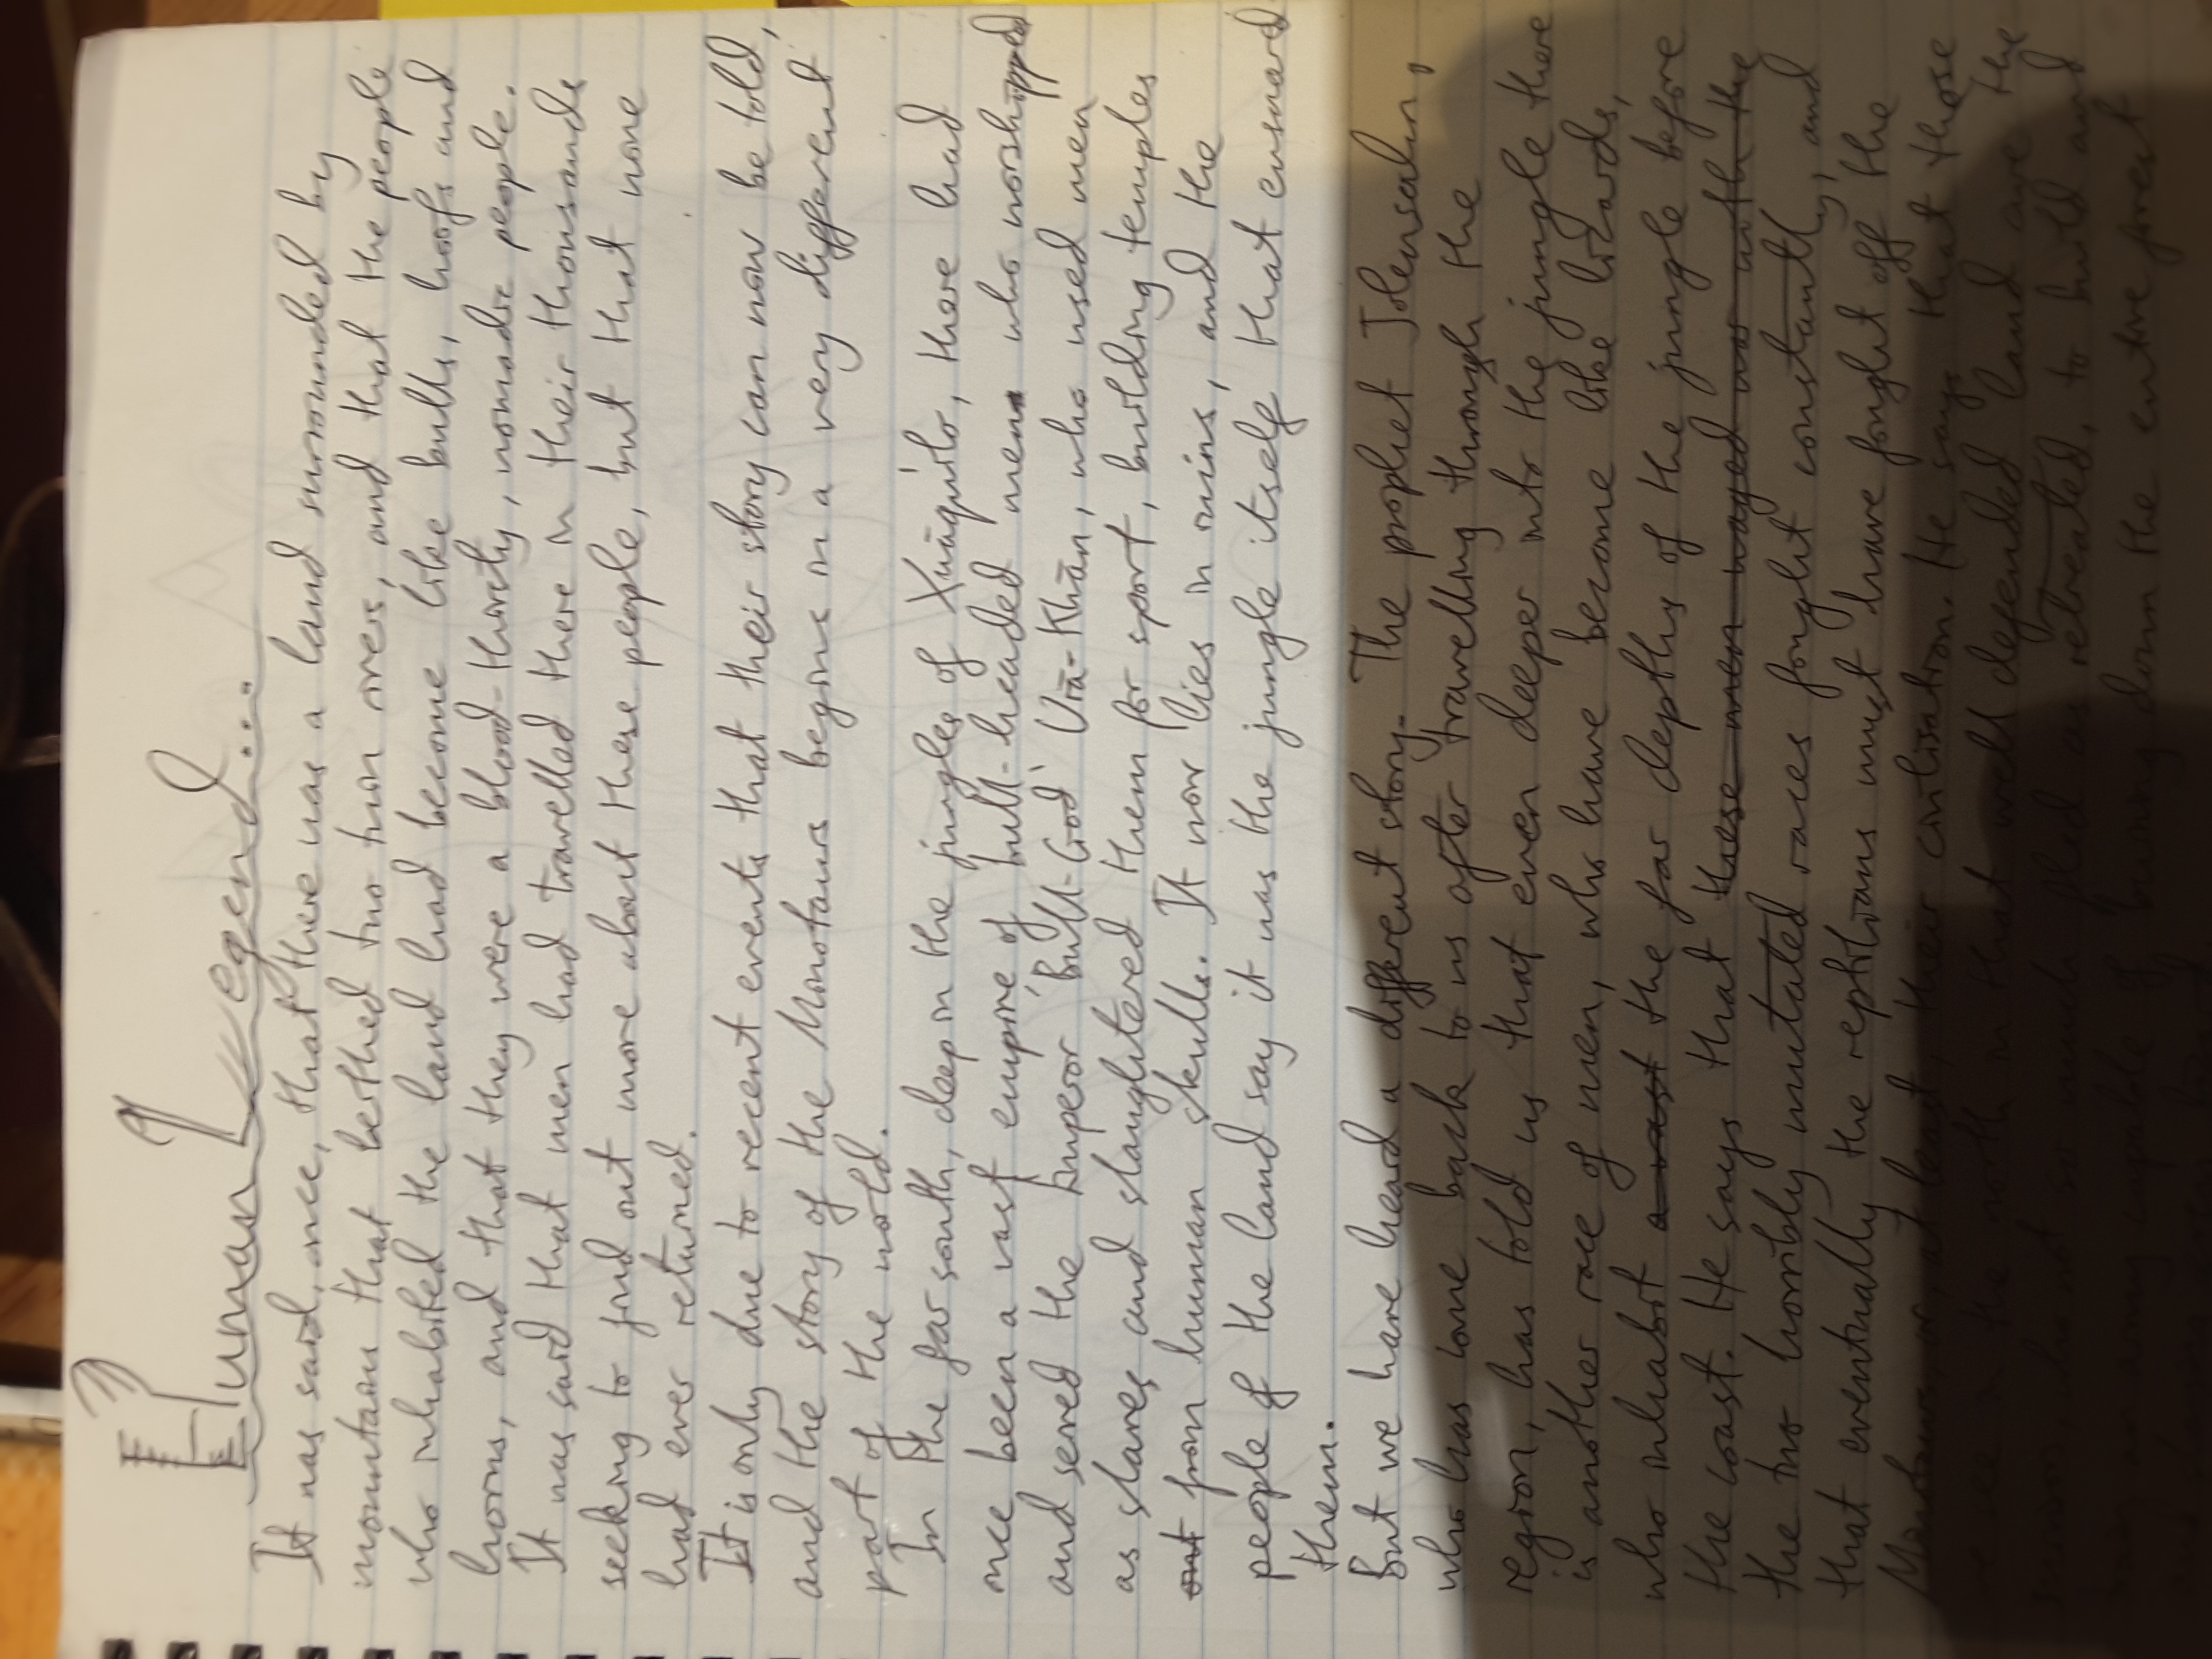 Human Legend...
It was said, once, that there was a land surrounded by
mountains that berthed two twin rivers, and that the people
who inhabited the land had become like bulls, hoofs and
horns, and that they were a blood-thirsty, nomadic people.
It was said that men had travelled there in their thousands
seeking to find out more about these people, but that none
had ever returned.
It is only due to recent events that their story can now be told,
and the story of the Minotaurs begins in a very different
part of the world.
In the far south, deep in the jungles of Xuāquilo, there had
once been a vast empire of bull-headed men who worshipped
and served the Emperor 'Bull-God' Urā-Khān, who used men
as slaves and slaughtered them for sport, building temples
out from human skulls. It now lies in ruins, and the
people of the land say it was the jungle itself that ensnared
them.
But we have heard a different story. The prophet
who has come back to us after travelling through the
region, has told us that even deeper into the jungle there
is another race of men, who have become like lizards,
who inhabit a vast the far depths of the jungle before
the coast. He says that these men waged war with the
the two horribly mutated races fought constantly, and
that eventually the reptilians must have fought off the
Minotaurs, or, at least, their civilisation. He says that those
we see in the north in that well defended land are the
who not so much fled as retreated, to build and
an army capable of burning down the entire forest